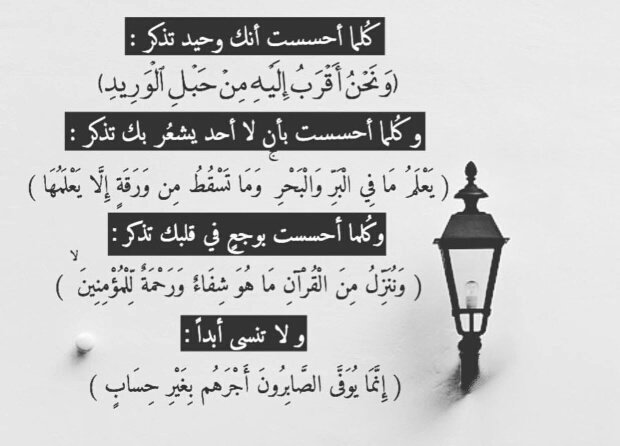 كُلما أحسست أنك وحيد تذكر :
(وَنَحْنُ أَقْرَبُ إِلَيْهِ مِنْ حَبْلِ الْوَرِيدِ)
وكُلما أحسست بأن لا أحد يشعُر بك تذكر :
( يَعْلَمُ مَا فِي الْبَرِّ وَالْبَحْرِ ۚ وَمَا تَسْقُطُ مِن وَرَقَةٍ إِلَّا يَعْلَمُهَا )
وكُلما أحسست بوجعٍ في قلبك تذكر :
( وَنُنَزِّلُ مِنَ الْقُرْآنِ مَا هُوَ شِفَاءٌ وَرَحْمَةٌ لِّلْمُؤْمِنِينَ ۙ )
و لا تنسى أبداً :
( إِنَّمَا يُوَفَّى الصَّابِرُونَ أَجْرَهُم بِغَيْرِ حِسَابٍ )